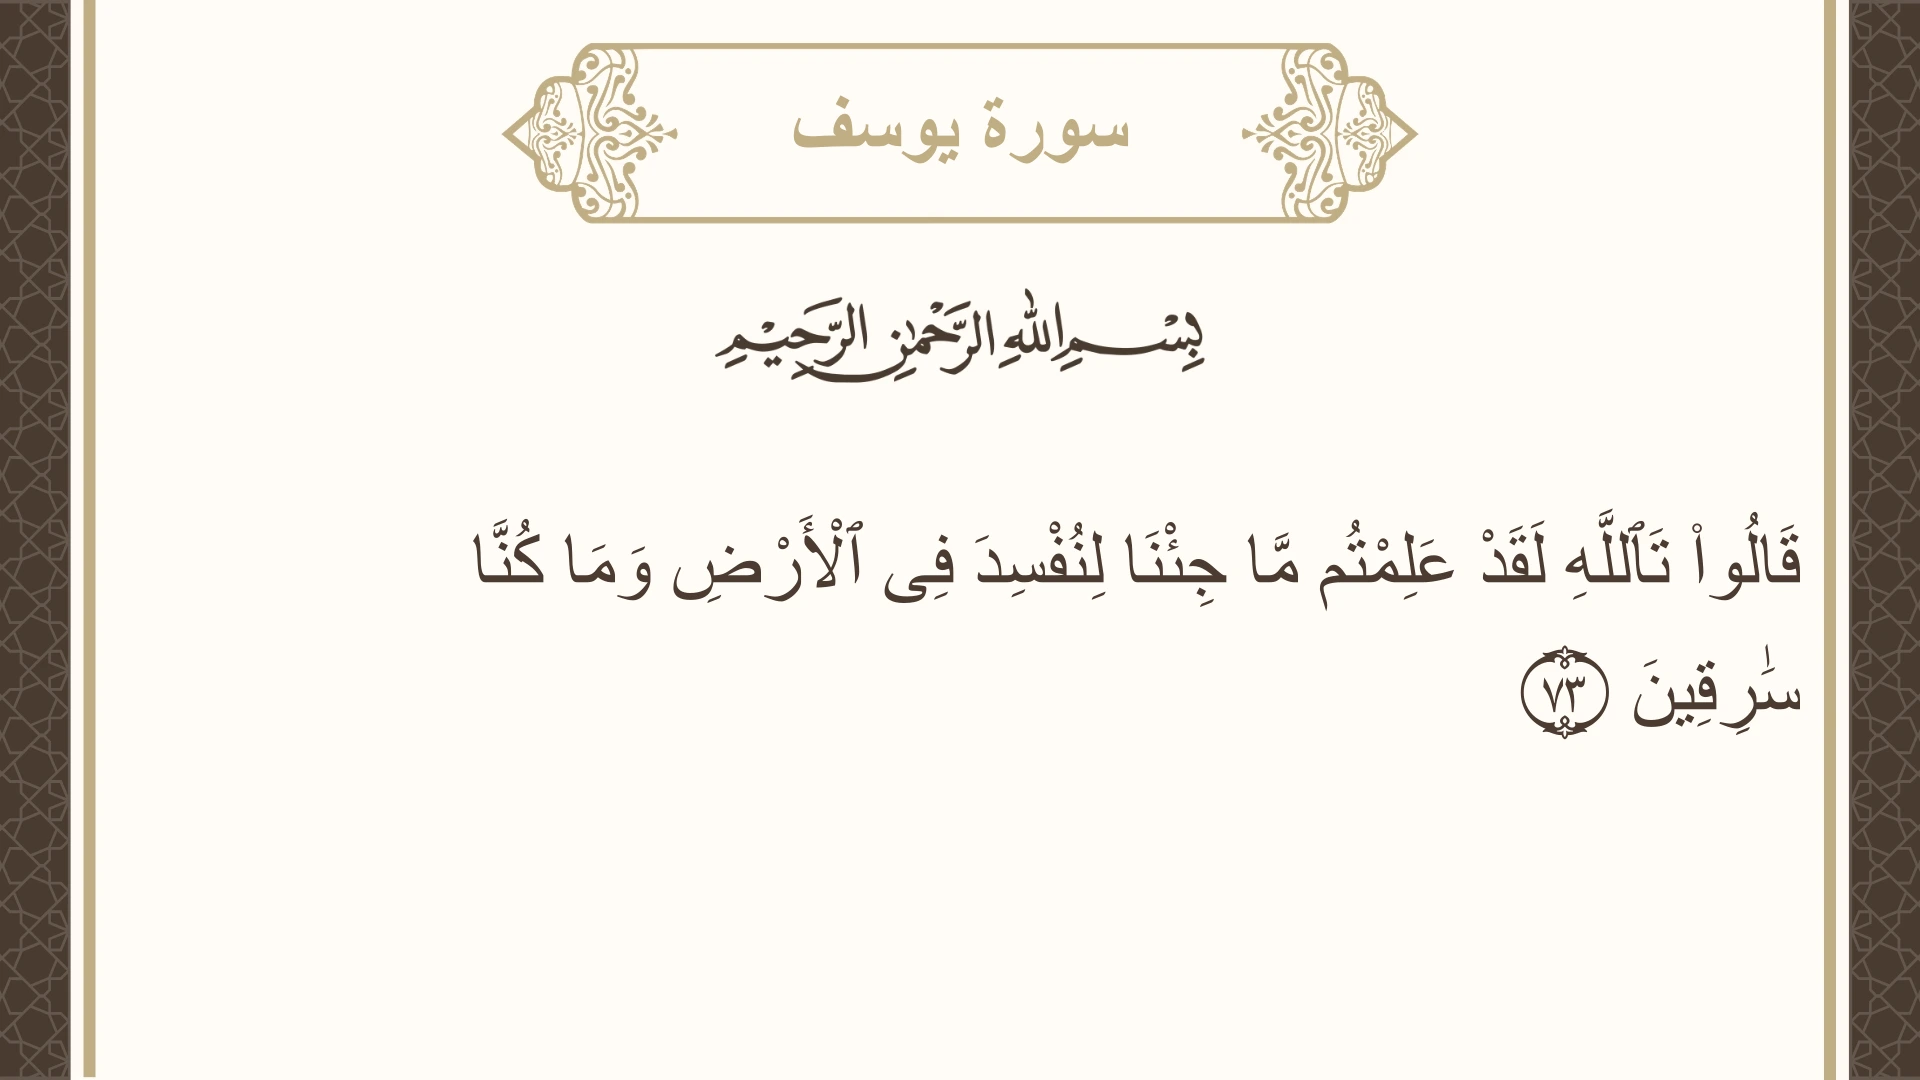 سورة يوسف
بِسْمِ اللهِ الرَّحْمٰنِ الرَّحِيْمِ
قَالُوا۟ تَٱللَّهِ لَقَدْ عَلِمْتُم مَّا جِئْنَا لِنُفْسِدَ فِى ٱلْأَرْضِ وَمَا كُنَّا
سَٰرِقِينَ ٧٣